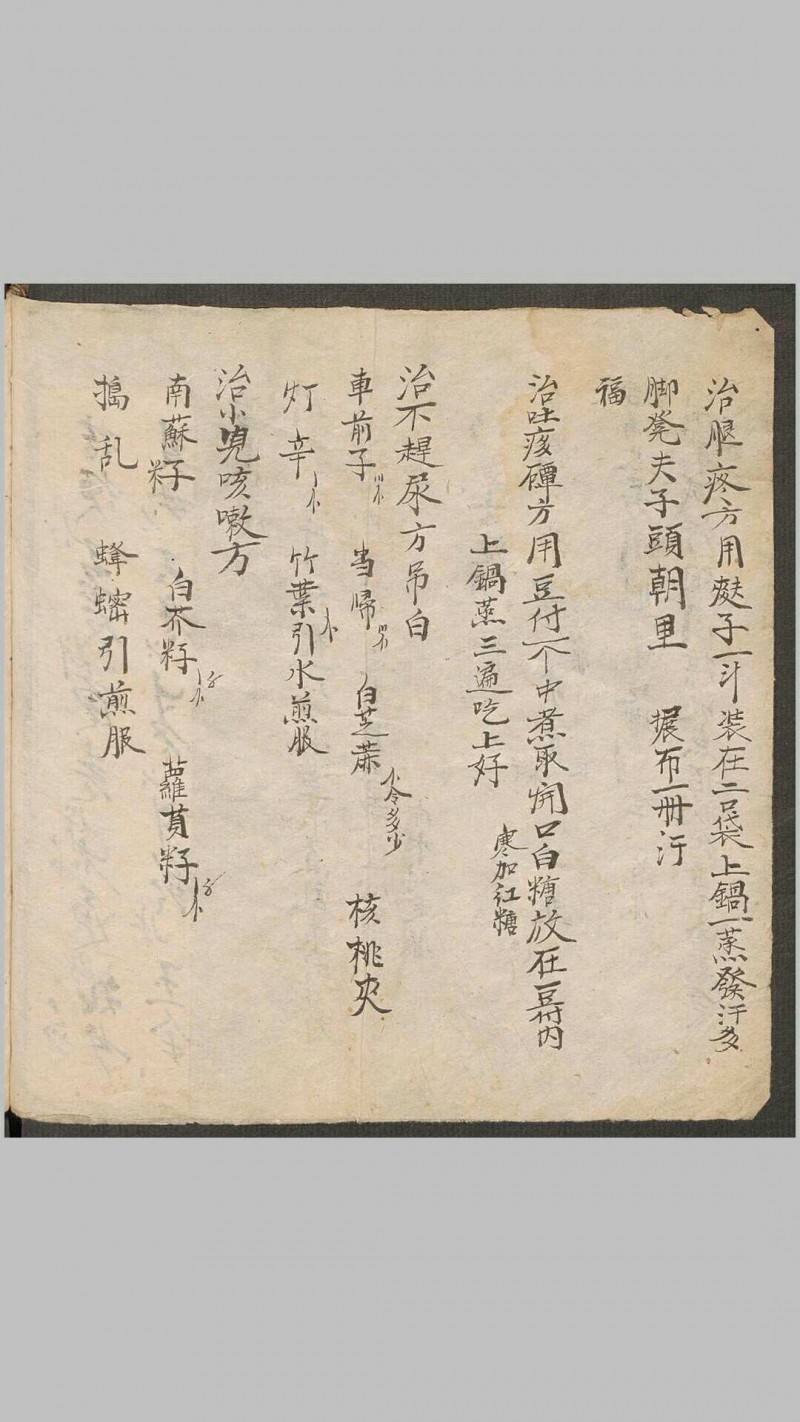 治腿疼方用麸子一斗装在二口袋上鍋一蒸發汗多
脚凳夫子頭朝里 摄布一冊汙
福
治吐痰方用豆付一个中煮取開口白糖放在豆付内
上鍋蒸三遍吃上好 寒加红糖
治不趕尿方吊白
車前子 当帰 白芝蔴 不今多少 核桃夾
灯辛 竹葉引水煎服
治小児咳嗽方
南蘇籽 白芥籽 蘿蔔籽
搗乱 蜂蜜引煎服